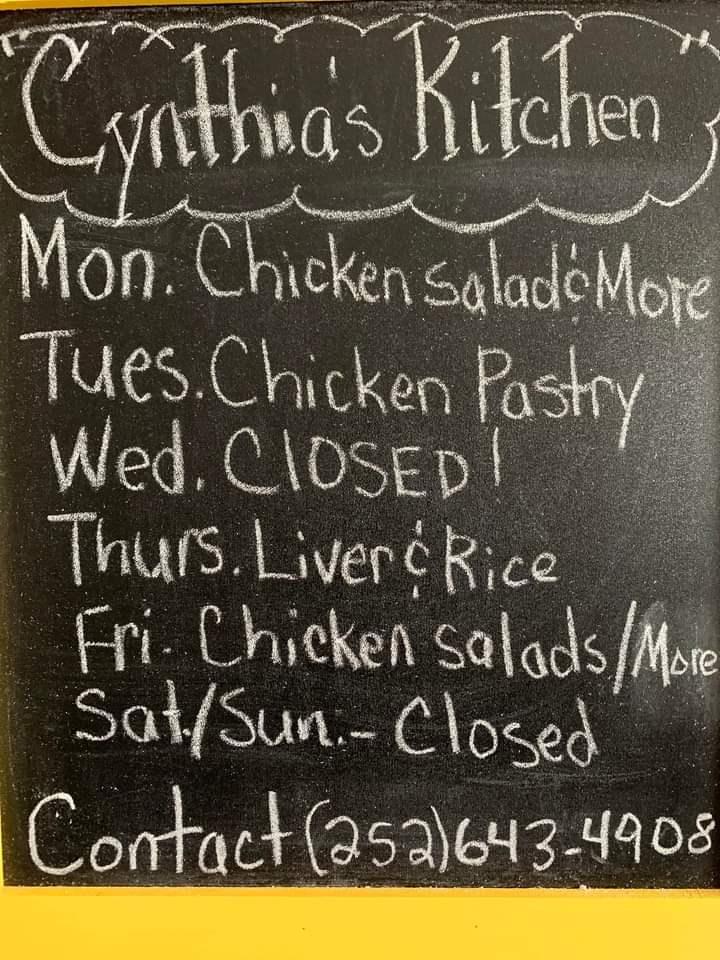 "Cynthia's Kitchen"
Mon. Chicken Salad & More
Tues. Chicken Pastry
Wed. ClOSED!
Thurs. Liver & Rice
Fri. Chicken salads/More
Sat./Sun.- Closed
Contact (252)643-4908